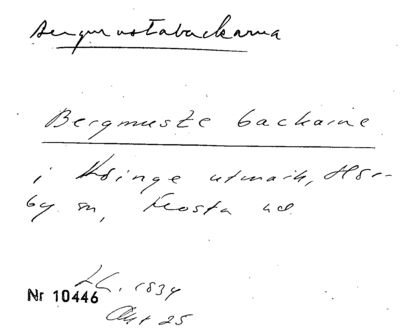 Bergmustabackarna
Bergmuste backarne
i Köinge utmark, Hör-
by sn, Frosta hd
LC. 1834
Nr 10446
Akt 25